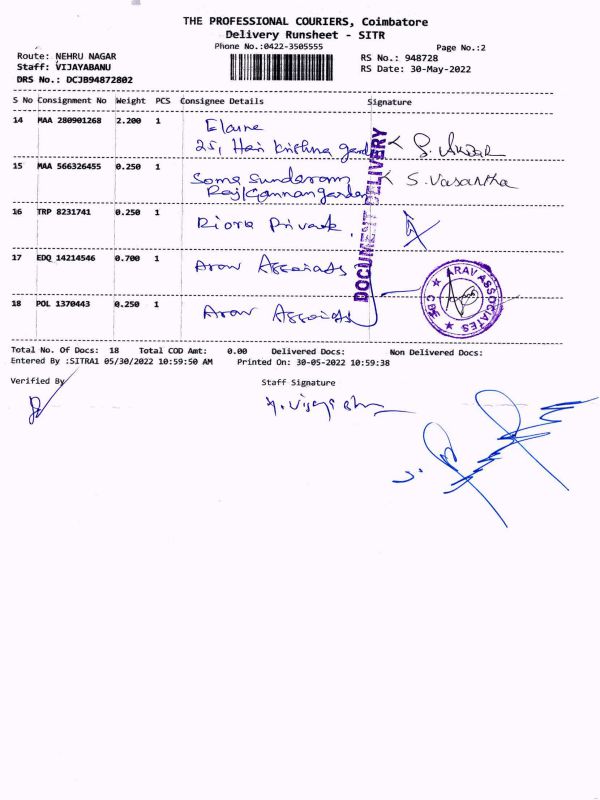 THE PROFESSIONAL COURIERS, Coimbatore
Delivery Runsheet - SITR
Phone No.:0422-3505555 Page No.:2
Route: NEHRU NAGAR RS No.: 948728
Staff: VIJAYABANU RS Date: 30-May-2022
DRS No.: DCJB94872802
S No Consignment No Weight PCS Consignee Details Signature
14 MAA 280901268 2.200 1 Elaine
25, Hari Krishna gard S. AKBAR
15 MAA 566326455 0.250 1 Soma Sundaram S. Vasantha
16 TRP 8231741 0.250 1
17 EDQ 14214546 0.700 1 Arav
18 POL 1370443 0.250 1 Arav
DOCUMENT DELIVERY
ARAV ASSOCIATES
CBE
Total No. Of Docs: 18 Total COD Amt: 0.00 Delivered Docs: Non Delivered Docs:
Entered By :SITRA1 05/30/2022 10:59:50 AM Printed On: 30-05-2022 10:59:38
Verified By Staff Signature